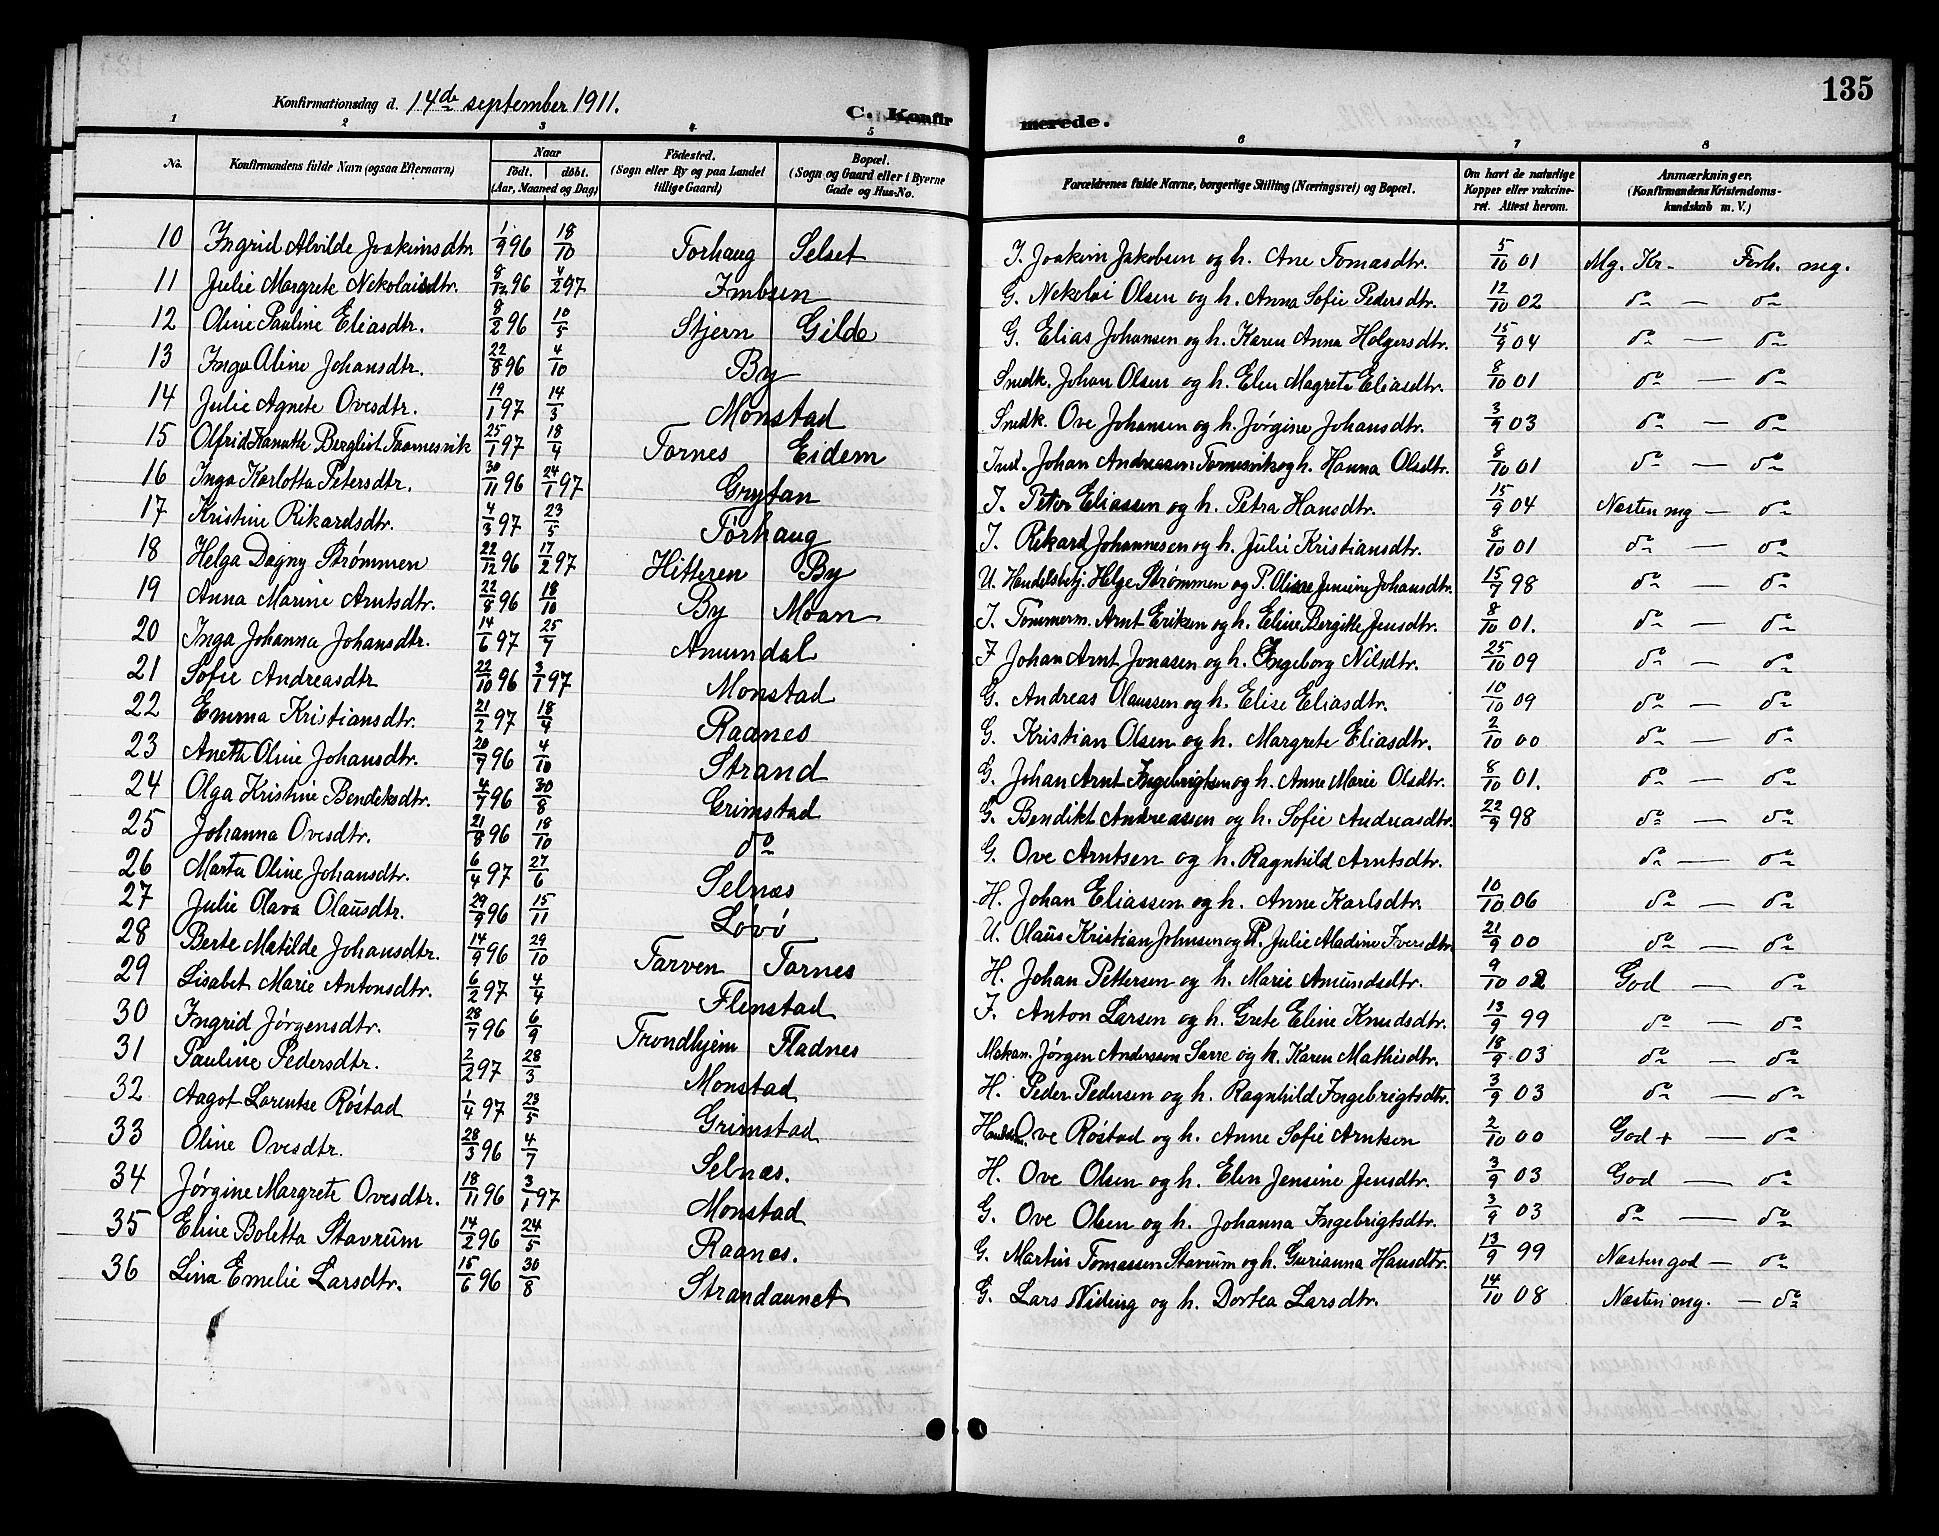 135
Konfirmationsdag d. 14de september 1911.
C. Konfirmerede.
1 2 3 4 5 6 7 8
No. Konfirmandens fulde Navn (ogsaa Efternavn) Naar födt. döbt. (Aar, Maaned og Dag) Födested. (Sogn eller By og paa Landet tillige Gaard) Bopæl. (Sogn og Gaard eller i Byerne Gade og Hus-No. Forældrenes fulde Navne, borgerlige Stilling (Næringsvei) og Bopæl. Om havt de naturlige Kopper eller vakcineret. Attest herom. Anmærkninger. (Konfirmandens Kristendomskundskab m. V.)
10 Ingrid Alvilde Joakimsdtr. 1/9 96 18/10 Torhaug Selset I. Joakim Jakobsen og h. Ane Tomasdtr. 5/10 01 Mg. Kr. - Forh. mg.
11 Julie Margrete Nekolaisdtr. 8/12 96 4/2 97 Imbsen G. Nekolai Olsen og h. Anna Sofie Pedersdtr. 12/10 02 do — do
12 Oline Pauline Eliasdtr. 8/2 96 10/5 Stjern Gilde G. Elias Johansen og h. Karen Anna Holgersdtr. 15/9 04 do — do
13 Inga Aline Johansdtr. 22/8 96 4/10 By Snedk. Johan Olsen og h. Elen Magrete Eliasdtr. 8/10 01 do — do
14 Julie Agnete Ovesdtr. 19/1 97 14/3 Monstad Snedk. Ove Johansen og h. Jørgine Johansdtr. 3/9 03 do — do
15 Olfrid Kanutte Bergliot Tarnesvik 25/1 97 18/4 Tornes Eidem Johan Andreasen Tarnesvik og h. Hanna Olsdtr. 8/10 01 do — do
16 Inga Karlotta Petersdtr. 30/11 96 24/1 97 Grytan I. Peter Eliassen og h. Petra Hansdtr. 15/9 04 Næsten mg — do
17 Kristine Rikardsdtr. 4/3 97 23/5 Torhaug I. Rikard Johannesen og h. Julie Kristiansdtr. 8/10 01 do — do
18 Helga Dagny Strømmen 22/12 96 17/2 97 Hitteren By U. Handelsbetj. Helge Strømmen og P. Oline Jensine Johansdtr. 15/7 98 do — do
19 Anna Marine Arntsdtr. 22/8 96 18/10 By Moan I. Tømmerm. Arnt Eriksen og h. Eline Bergitte Jensdtr. 8/10 01. do — do
20 Inga Johanna Johansdtr. 14/6 97 25/7 Amundal F Johan Arnt Jonasen og h. Ingeborg Nilsdtr. 25/10 09 do — do
21 Sofie Andreasdtr 22/10 96 3/1 97 Monstad G. Andreas Olaussen og h. Elise Eliasdtr. 10/10 09 do — do
22 Emma Kristiansdtr. 21/2 97 18/4 Raanes G. Kristian Olsen og h. Margrete Eliasdtr. 2/10 00 do — do
23 Anette Oline Johansdtr. 20/7 96 4/10 Strand G. Johan Arnt Ingebrigtsen og h. Anne Marie Olsdtr. 8/10 01. do — do
24 Olga Kristine Bendiksdtr. 4/7 96 30/8 Grimstad G. Bendikt Andreassen og h. Sofie Andreasdtr. 22/9 98 do — do
25 Johanna Ovesdtr. 21/8 96 18/10 do G. Ove Arntsen og h. Ragnhild Arntsdtr. do — do
26 Marta Oline Johansdtr. 6/4 97 27/6 Selnæs H. Johan Eliassen og h. Anne Karlsdtr. 10/10 06 do — do
27 Julie Olava Olausdtr. 29/9 96 15/11 Lövö U. Olaus Kristian Johnsen og P. Julie Aladine Iversdtr 21/9 00 do — do
28 Berte Matilde Johansdtr. 14/9 96 29/10 Tarven Tarnes H. Johan Pettersen og h. Marie Amundsdtr. 9/10 02 God — do
29 Lisabet Marie Antonsdtr. 6/2 97 4/4 Flenstad I. Anton Larsen og h. Grete Eline Knudsdtr. 13/9 99 do — do
30 Ingrid Jørgensdtr. 28/7 96 6/9 Trondhjem Fladnes Makan. Jørgen Anderssen Sarre og h. Karen Mathisdtr. 18/9 03 do — do
31 Pauline Pedersdtr. 2/2 97 28/3 Monstad H. Peder Pedersen og h. Ragnhild Ingebrigtsdtr. 3/9 03 do — do
32 Aagot Lorentse Röstad 1/4 97 23/5 Grimstad Ove Röstad og h. Anne Sofie Arntsen 2/10 00 God + — do
33 Oline Ovesdtr. 28/3 96 4/7 Selnæs. H. Ove Olsen og h. Elen Jensine Jensdtr. 3/9 03 God — do
34 Jørgine Margrete Ovesdtr. 18/11 96 3/1 97 Monstad G. Ove Olsen og h. Johanna Ingebrigtsdtr. 3/9 03 do — do
35 Eline Boletta Stavrum 14/2 96 24/5 Raanes. G. Martin Tomassen Stavrum og h. Gurianna Hansdtr. 13/9 99 Næsten god — do
36 Lina Emelie Larsdtr. 15/6 96 30/8 Strandaunet G. Lars Niding og h. Dortea Larsdtr. 14/10 08 Næsten mg. — do